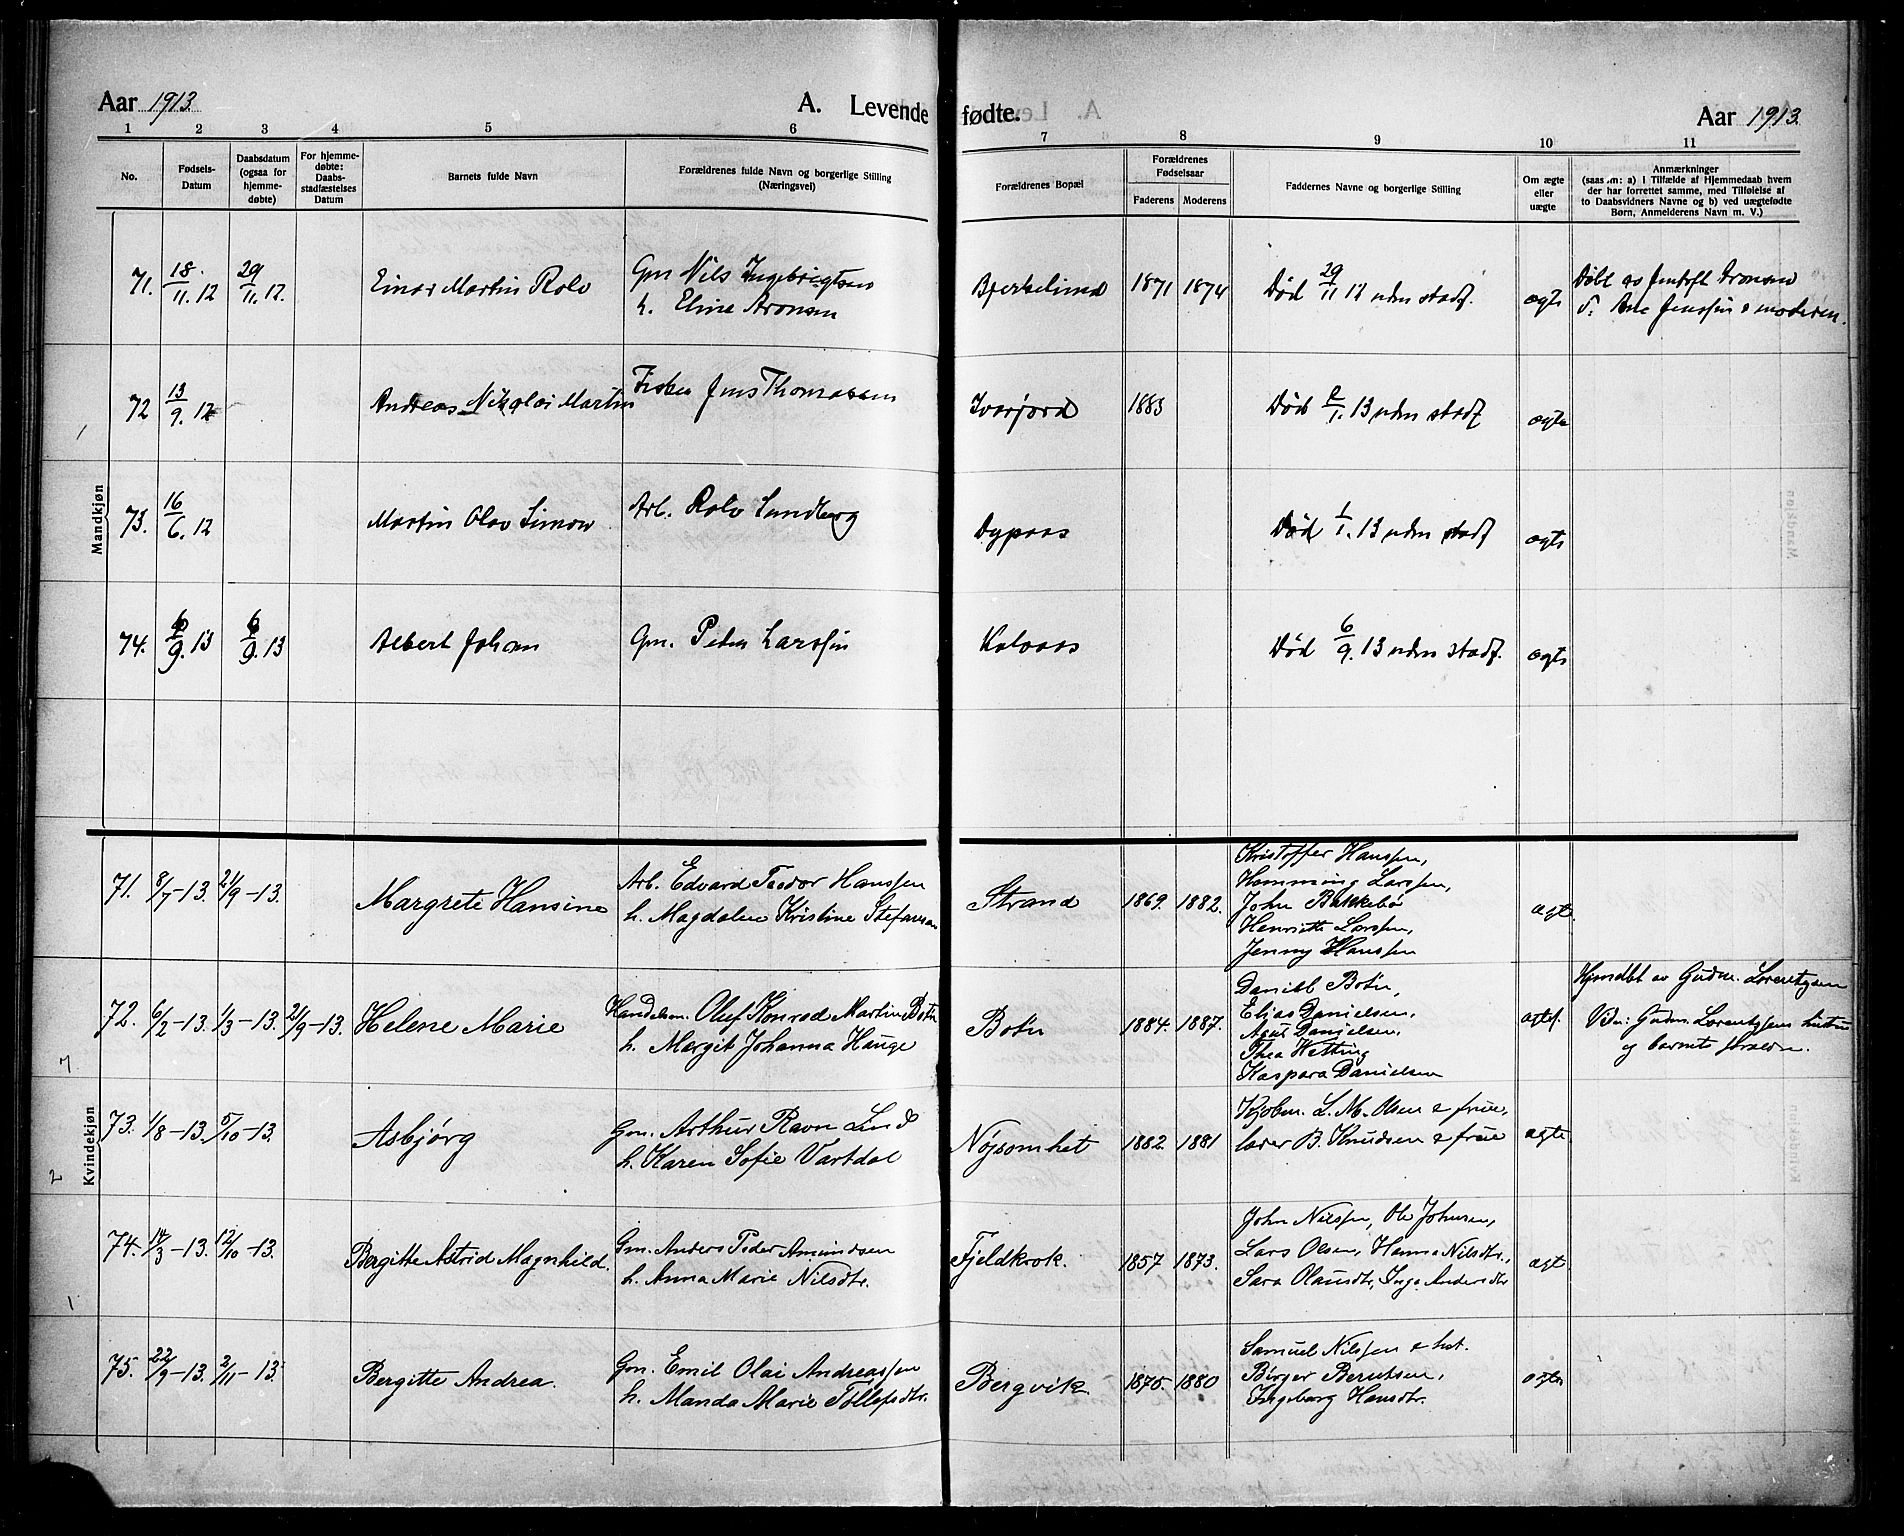 Aar 1913 A. Levende fødte. Aar 1913.
1 2 3 4 5 6 7 8 9 10 11
No.
Fødsels-
Datum
Daabsdatum
(ogsaa for
hjemme-
døbte)
For hjemme-
døbte:
Daabs-
stadfæstelses
Datum
Barnets fulde Navn
Forældrenes fulde Navn og borgerlige Stilling
(Næringsvei)
Forældrenes Bopæl
Forældrenes
Fødselsaar
Faderens Moderens
Faddernes Navne og borgerlige Stilling
Om ægte
eller
uægte
Anmærkninger
(saas.om: a) i Tilfælde af Hjemmedaab hvem
der har forrettet samme, med Tilføielse af
to Daabsvidners Navne og b) ved uægtefødte
Børn, Anmelderens Navn m. V.)
Mandkjøn
71. 18/11. 12 29/11. 12. Einar Martin Rolv
Gm Nils Ingebrigtsen
h. Eline Aronsen
1871 1874 Død 29/11 12 uden stadf. ægte
72 13/9. 12 Andreas Nikolai Martin
Fisker Jens Thomassen
Ivarfjord 1883 Død 2/1. 13 uden stadf ægte
73. 16/6. 12 Martin Olav Simon
Arb. Rolv Sundberg
Dypaas Død 1/1. 13 uden stadf ægte
74. 6/9. 13 6/9. 13 Albert Johan
Gm. Peder Larssen
Kalvaas Død 6/9. 13 uden stadf. ægte
Kvindekjøn
71. 8/7-13 21/9-13. Margrete Hansine
Arb. Edvard Teodor Hanssen
h. Magdalene Kristine Stefansen
Strand 1869. 1882.
Kristoffer Hanssen,
Hemming Larssen,
John Bakkebø
Henriette Larssen,
Jenny Hanssen
ægte
72. 6/2-13. 1/3-13. 21/9-13. Helene Marie
Handelsm. Oluf Konrad Martin Botn
h. Margit Johanna Hauge
Botn 1884. 1887.
Daniel Botn,
Elias Danielsen,
Agnt Danielsen,
Thea Wetting
Kaspara Danielsen
ægtef.
Hjemdbt av Gudm. Lorentzsen
Vidn: Gudm. Lorentzsens hustru
og barnets forældre.
73. 1/8-13. 5/10-13. Asbjørg
Gm. Arthur Ravn Lind
h. Karen Sofie Vartdal
Nøjsomhet 1882. 1881
Kjøbm. L. M. Olsen & frue,
lærer B. Knudsen & frue
ægte
74. 14/3-13. 12/10-13. Bergitte Astrid Magnhild.
Gm. Anders Peder Amundsen
h. Anna Marie Nilsdtr.
Fjeldkrok. 1857 1873.
John Nilssen, Ole Johnsen,
Lars Olsen, Hanna Nilsdtr.,
Sara Olausdtr, Inga Andersdtr
ægt
75. 22/9-13. 2/11-13. Bergitte Andrea.
Gm. Emil Olai Andreassen
h. Manda Marie Tollefsdtr.
Bergvik. 1875. 1880
Samuel Nilssen & hst.
Birger Berntsen,
Ingeborg Hansdtr.
ægte